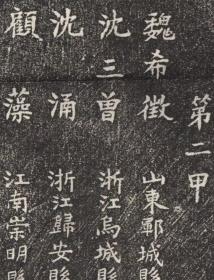 第二甲
魏希徵 山東鄆城縣
沈三曾 浙江烏城縣
沈涌 浙江歸安縣
顧藻 江南崇明縣